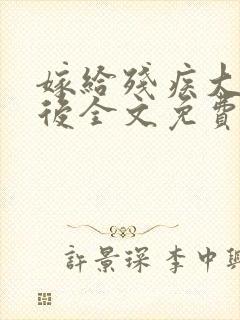 嫁給殘疾大
後全文免費
許景琛 李中興